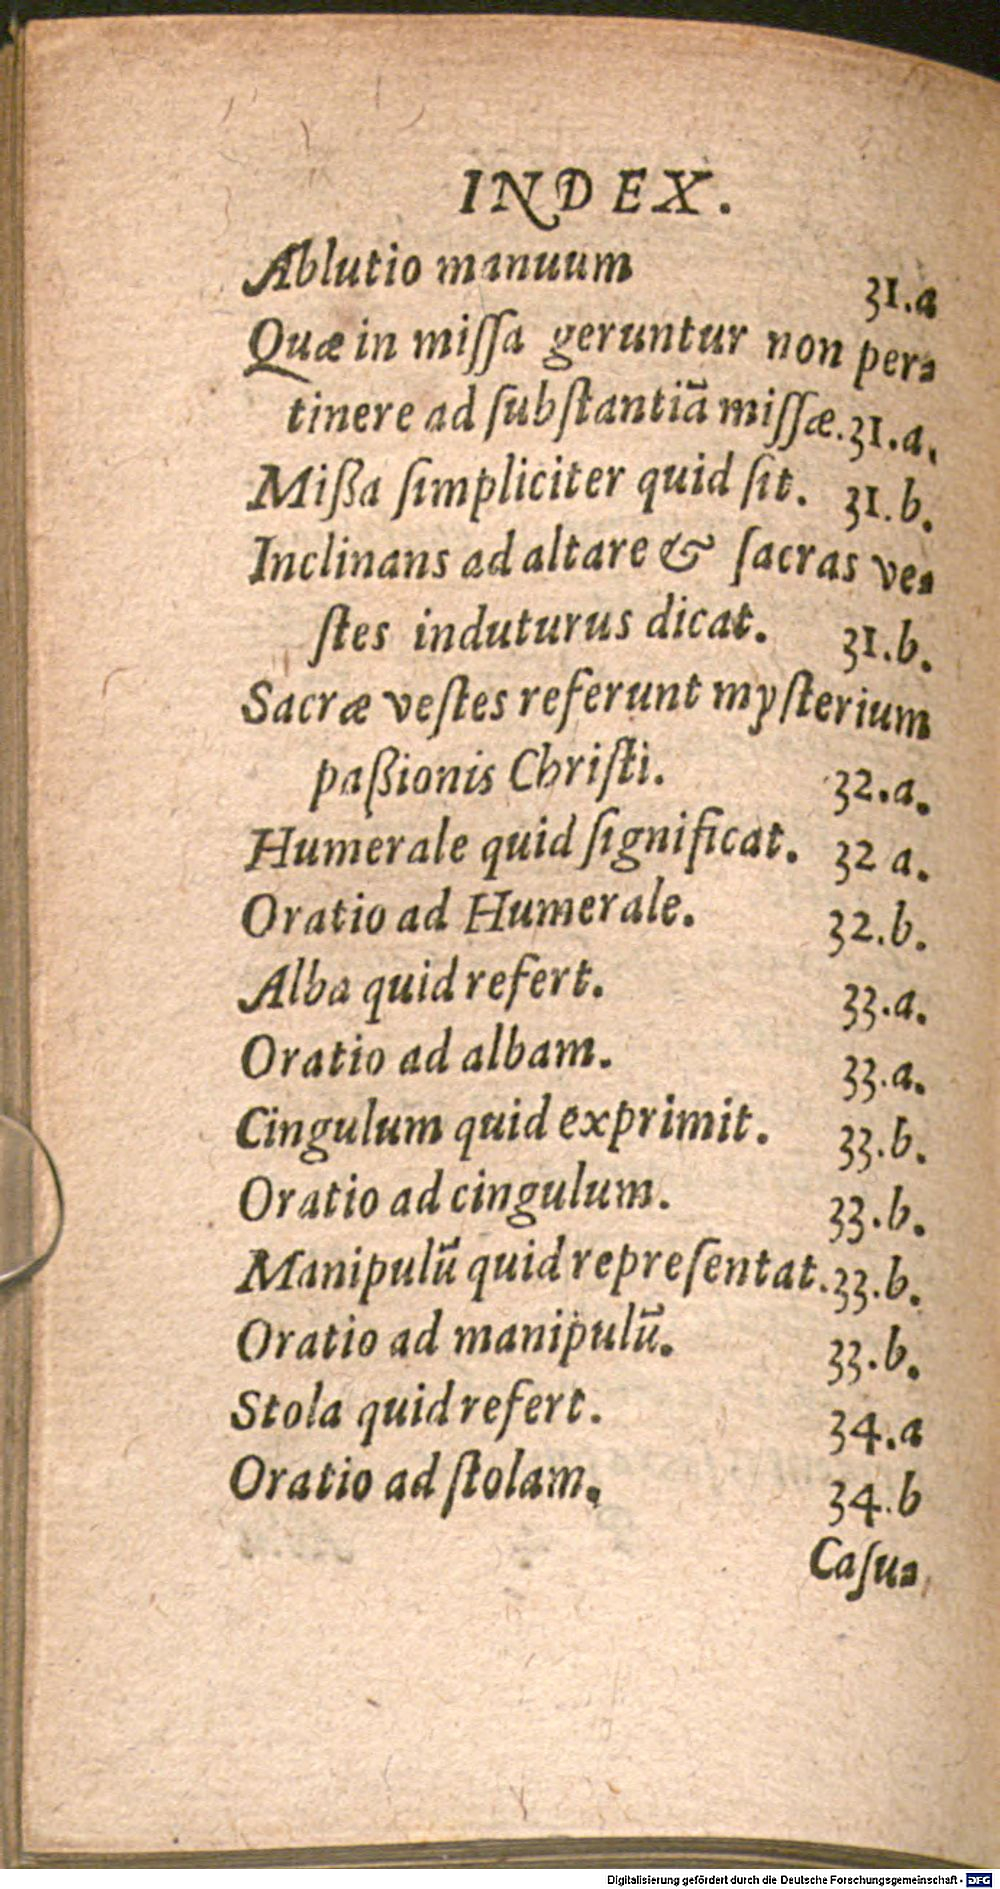 INDEX.
Ablutio manuum 31.a
Quæ in miſſa geruntur non per⸗
tinere ad ſubſtantiā miſſæ. 31.a.
Mißa ſimpliciter quid ſit. 31.b.
Inclinans ad altare & ſacras ve⸗
ſtes induturus dicat. 31.b.
Sacræ veſtes referunt myſterium
paßionis Chriſti. 32.a.
Humerale quid ſignificat. 32 a.
Oratio ad Humerale. 32.b.
Alba quid refert. 33.a.
Oratio ad albam. 33.a.
Cingulum quid exprimit. 33.b.
Oratio ad cingulum. 33.b.
Manipulū quid repreſentat. 33.b.
Oratio ad manipulū. 33.b.
Stola quid refert. 34.a
Oratio ad ſtolam. 34.b
Caſu⸗
Digitalisierung gefördert durch die Deutsche Forschungsgemeinschaft - DFG